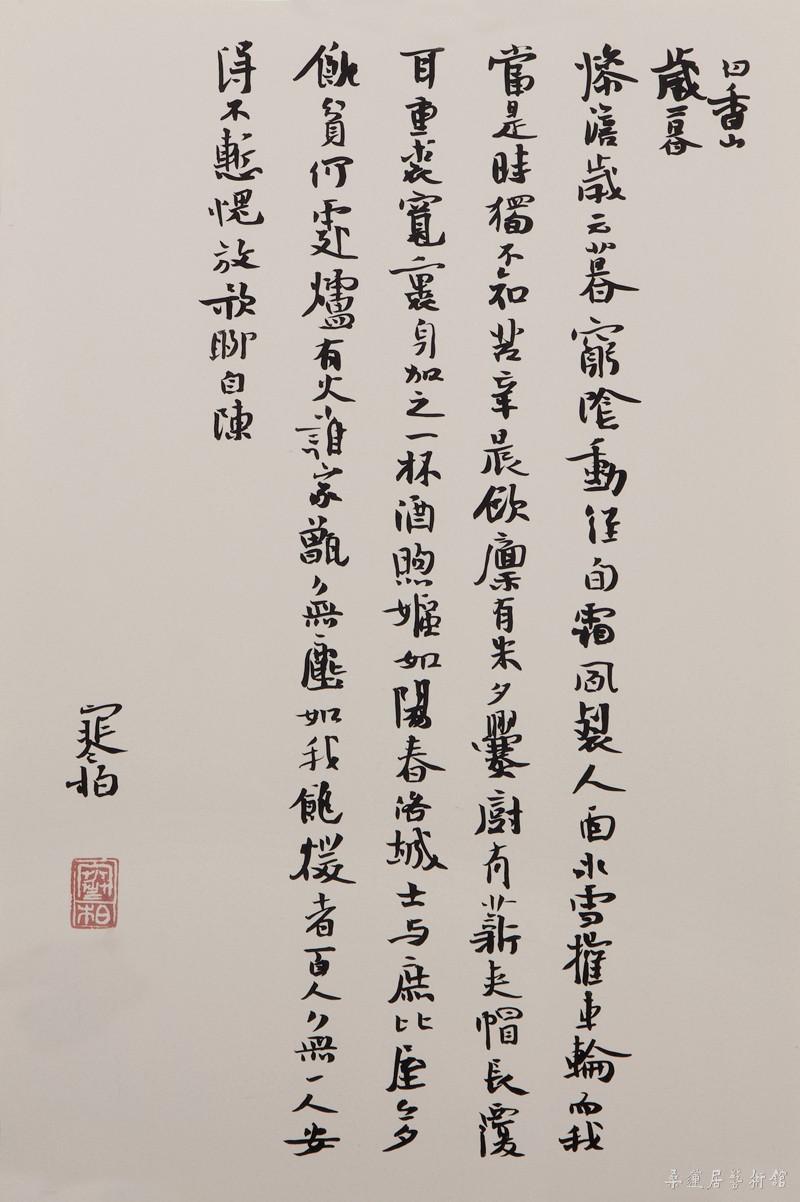 白香山
歲暮
慘澹歲云暮窮陰動經旬霜風裂人面冰雪摧車輪而我
當是時獨不知苦辛晨炊廩有米夕爨廚有薪夾帽長覆
耳重裘寬裹身加之一杯酒煦嫗如陽春洛城士与庶比屋多
飢貧何處爐有火誰家甑無塵如我飽煖者百人無一人安
得不慙愧放歌聊自陳
桑蓮居藝術館